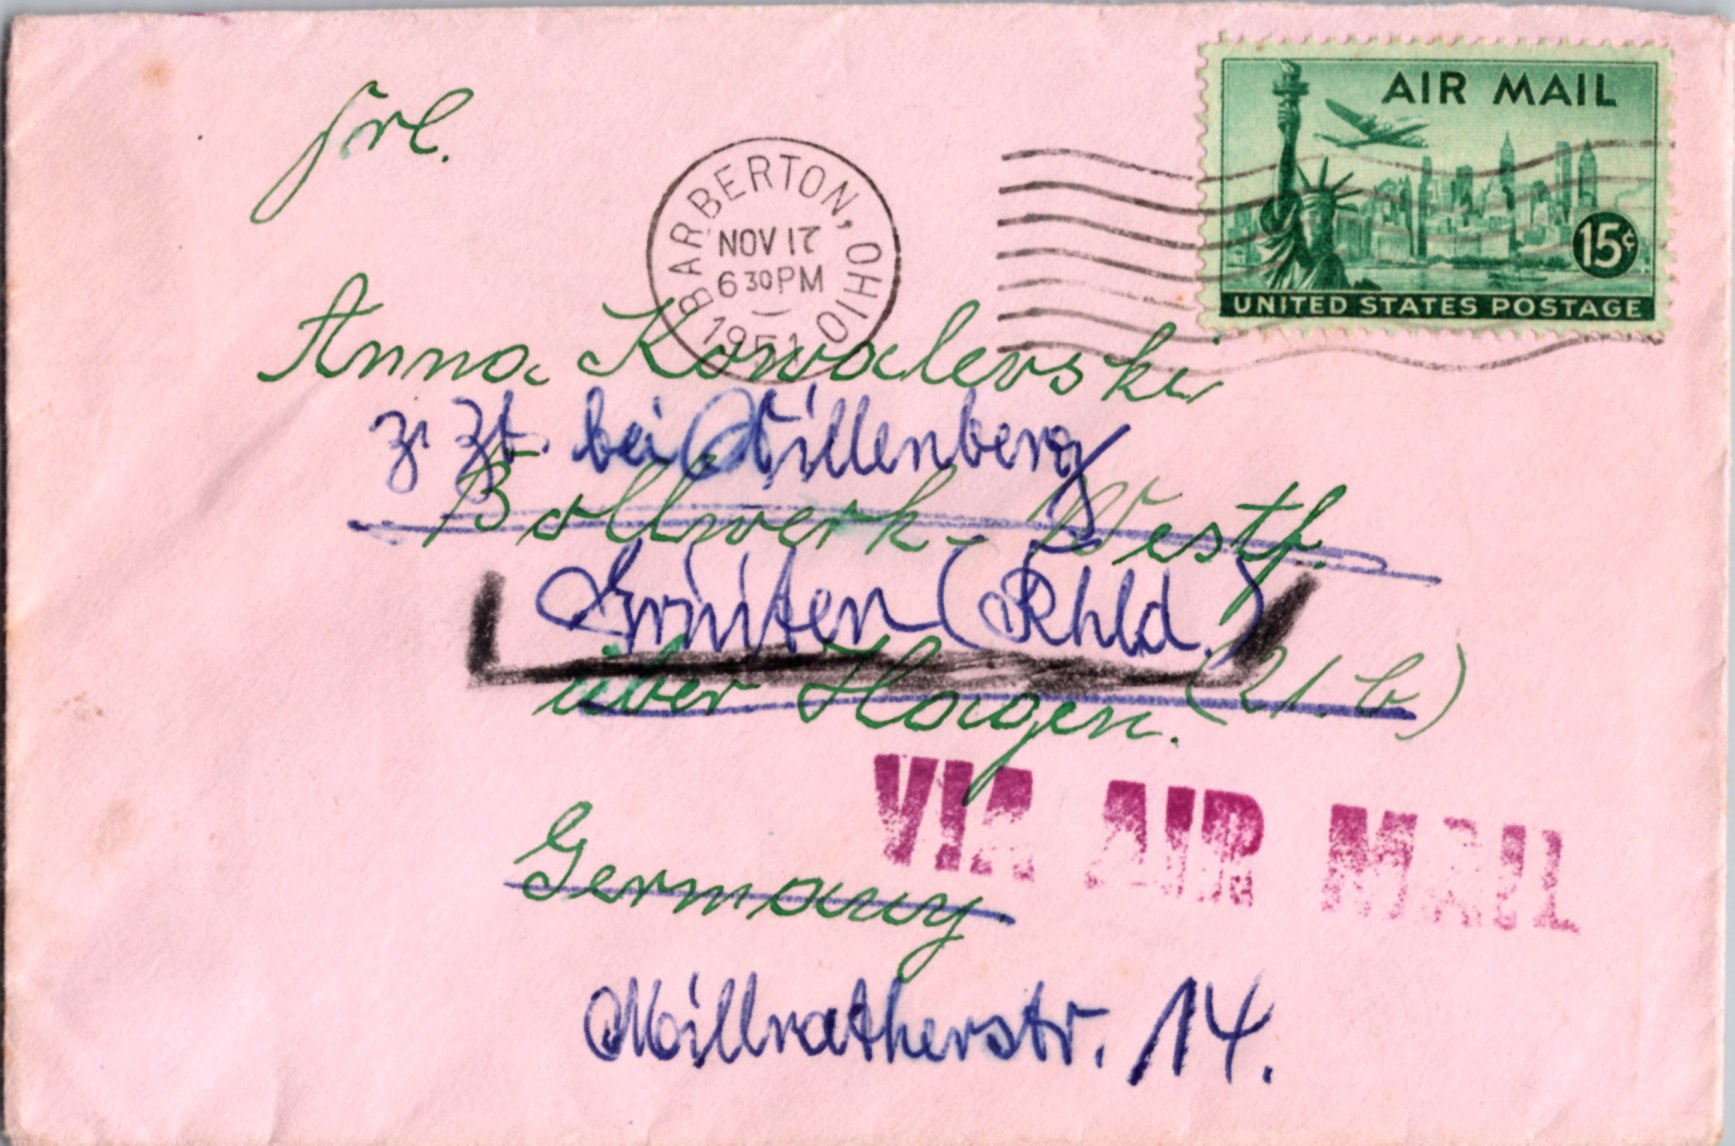 Frl.
AIR MAIL
15¢
UNITED STATES POSTAGE
BARBERTON, OHIO
NOV 17
6 30 PM
1951
Anna Kowalevski
z. Zt. bei Willenberg
Bollwerk - Westf.
Gruiten (Rhld.)
über Hagen. (21.b)
VIA AIR MAIL
Germany.
Millratherstr. 14.